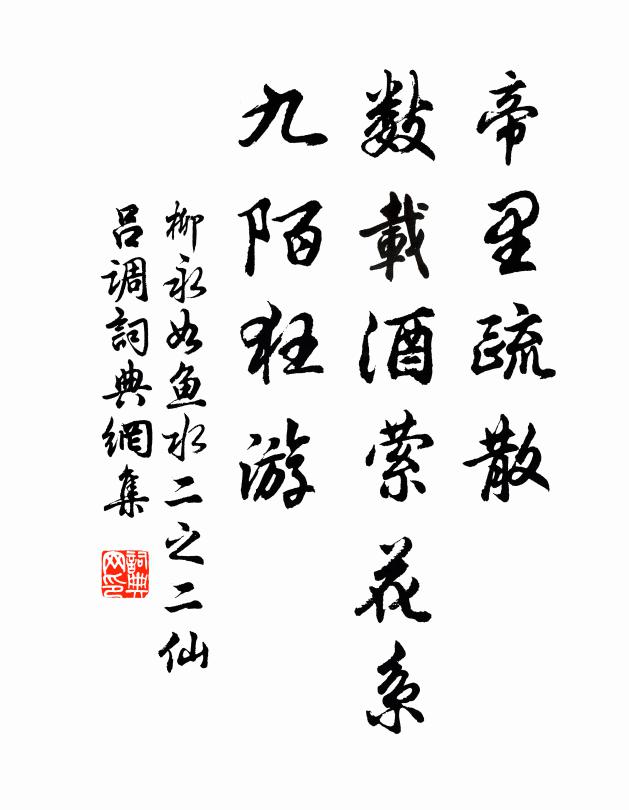 帝里疏散
數載酒萦花系
九陌狂游
柳永如鱼水二之二仙
吕调詞典網集
詞典网印